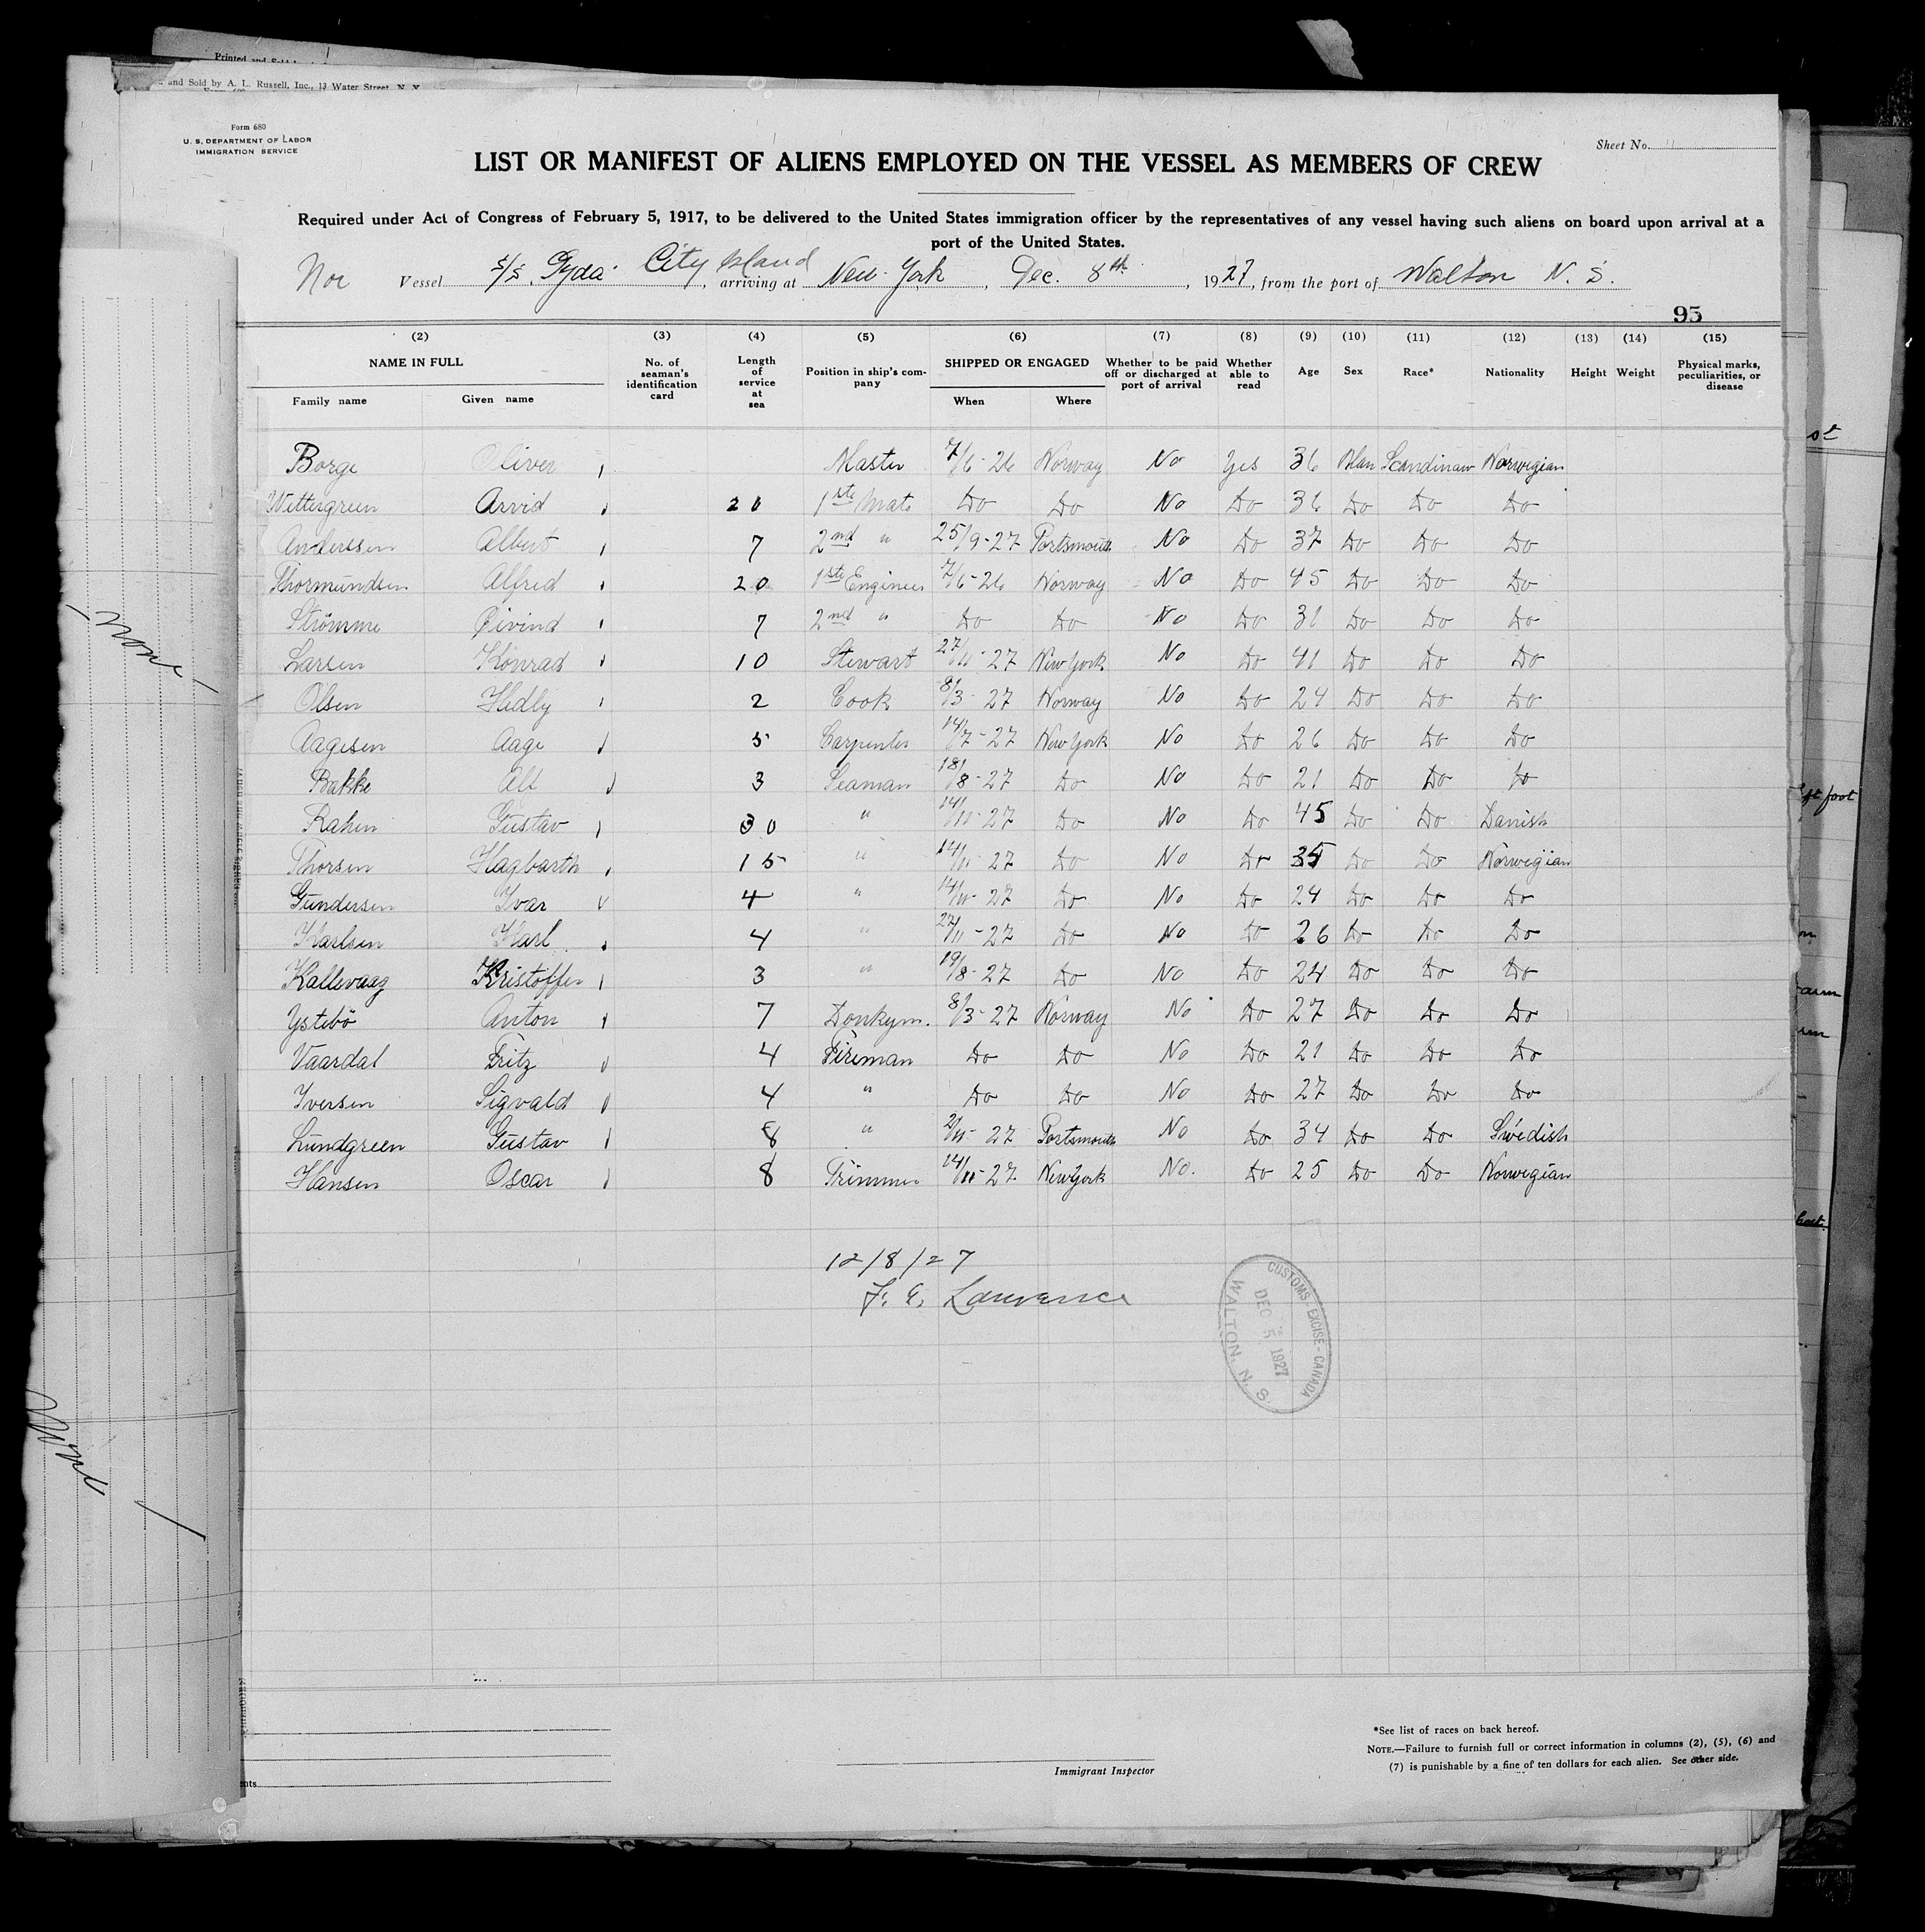 Printed and Sold
and Sold by A. L. Russell, Inc., 13 Water Street, N. Y.
Form 680
U. S. DEPARTMENT OF LABOR
IMMIGRATION SERVICE
Sheet No.
LIST OR MANIFEST OF ALIENS EMPLOYED ON THE VESSEL AS MEMBERS OF CREW
Required under Act of Congress of February 5, 1917, to be delivered to the United States immigration officer by the representatives of any vessel having such aliens on board upon arrival at a
port of the United States.
Nor Vessel S/S. Gyda City Island, arriving at New-York, Dec. 8th, 1927, from the port of Walton N. S.
95
(2) (3) (4) (5) (6) (7) (8) (9) (10) (11) (12) (13) (14) (15)
NAME IN FULL No. of seaman's identification card Length of service at sea Position in ship's company SHIPPED OR ENGAGED Whether to be paid off or discharged at port of arrival Whether able to read Age Sex Race* Nationality Height Weight Physical marks, peculiarities, or disease
Family name Given name When Where
Borge Oliver Master 7/6-26 Norway No Yes 36 Man Scandinav Norwegian
Wettergreen Arvid 20 1ste Mate Do Do No Do 36 Do Do Do
Anderssen Albert 7 2nd " 25/9-27 Portsmouth No Do 37 Do Do Do
Thormundsen Alfred 20 1ste Engineer 7/6-26 Norway No Do 45 Do Do Do
Strömme Øivind 7 2nd " Do Do No Do 31 Do Do Do
Larsen Konrad 10 Stewart 27/11-27 New York No Do 41 Do Do Do
Olsen Hedly 2 Cook 8/3-27 Norway No Do 24 Do Do Do
Aagesen Aage 5 Carpenter 14/7-27 New York No Do 26 Do Do Do
Bakke Alf 3 Seaman 18/8-27 Do No Do 21 Do Do Do
Rahen Gustav 30 " 14/11-27 Do No Do 45 Do Do Danish
Thorsen Hagbarth 15 " 14/11-27 Do No Do 35 Do Do Norwegian
Gundersen Ivar 4 " 14/11-27 Do No Do 24 Do Do Do
Karlsen Karl 4 " 27/11-27 Do No Do 26 Do Do Do
Kallevaag Kristoffer 3 " 19/8-27 Do No Do 24 Do Do Do
Ystebö Anton 7 Donkym. 8/3-27 Norway No Do 27 Do Do Do
Vaardal Fritz 4 Fireman Do Do No Do 21 Do Do Do
Iversen Sigvald 4 " Do Do No Do 27 Do Do Do
Lundgreen Gustav 8 " 2/11-27 Portsmouth No Do 34 Do Do Swedish
Hansen Oscar 8 Trimmer 14/11-27 New York No. Do 25 Do Do Norwegian
12/8/27
F. E. Lawrence
CUSTOMS EXCISE - CANADA
DEC 5 1927
WALTON, N. S.
None
foot
*See list of races on back hereof.
NOTE.—Failure to furnish full or correct information in columns (2), (5), (6) and
(7) is punishable by a fine of ten dollars for each alien. See other side.
Immigrant Inspector